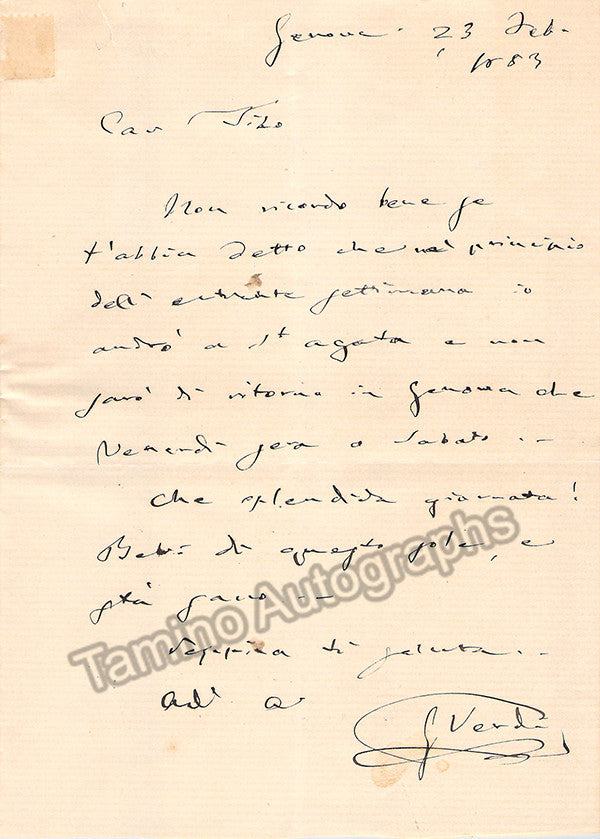 Genova 23 Feb.
1883
Car Tito
Non ricordo bene se
t'abbia detto che nel principio
dell'entrante settimana io
andrò a St Agata e non
sarò di ritorno in Genova che
Venerdì sera o Sabato ..
Che splendida giornata!
Bevi di questo sole, e
stà sano ..
Peppina ti saluta ..
Ad. a
G Verdi
Tamino Autographs